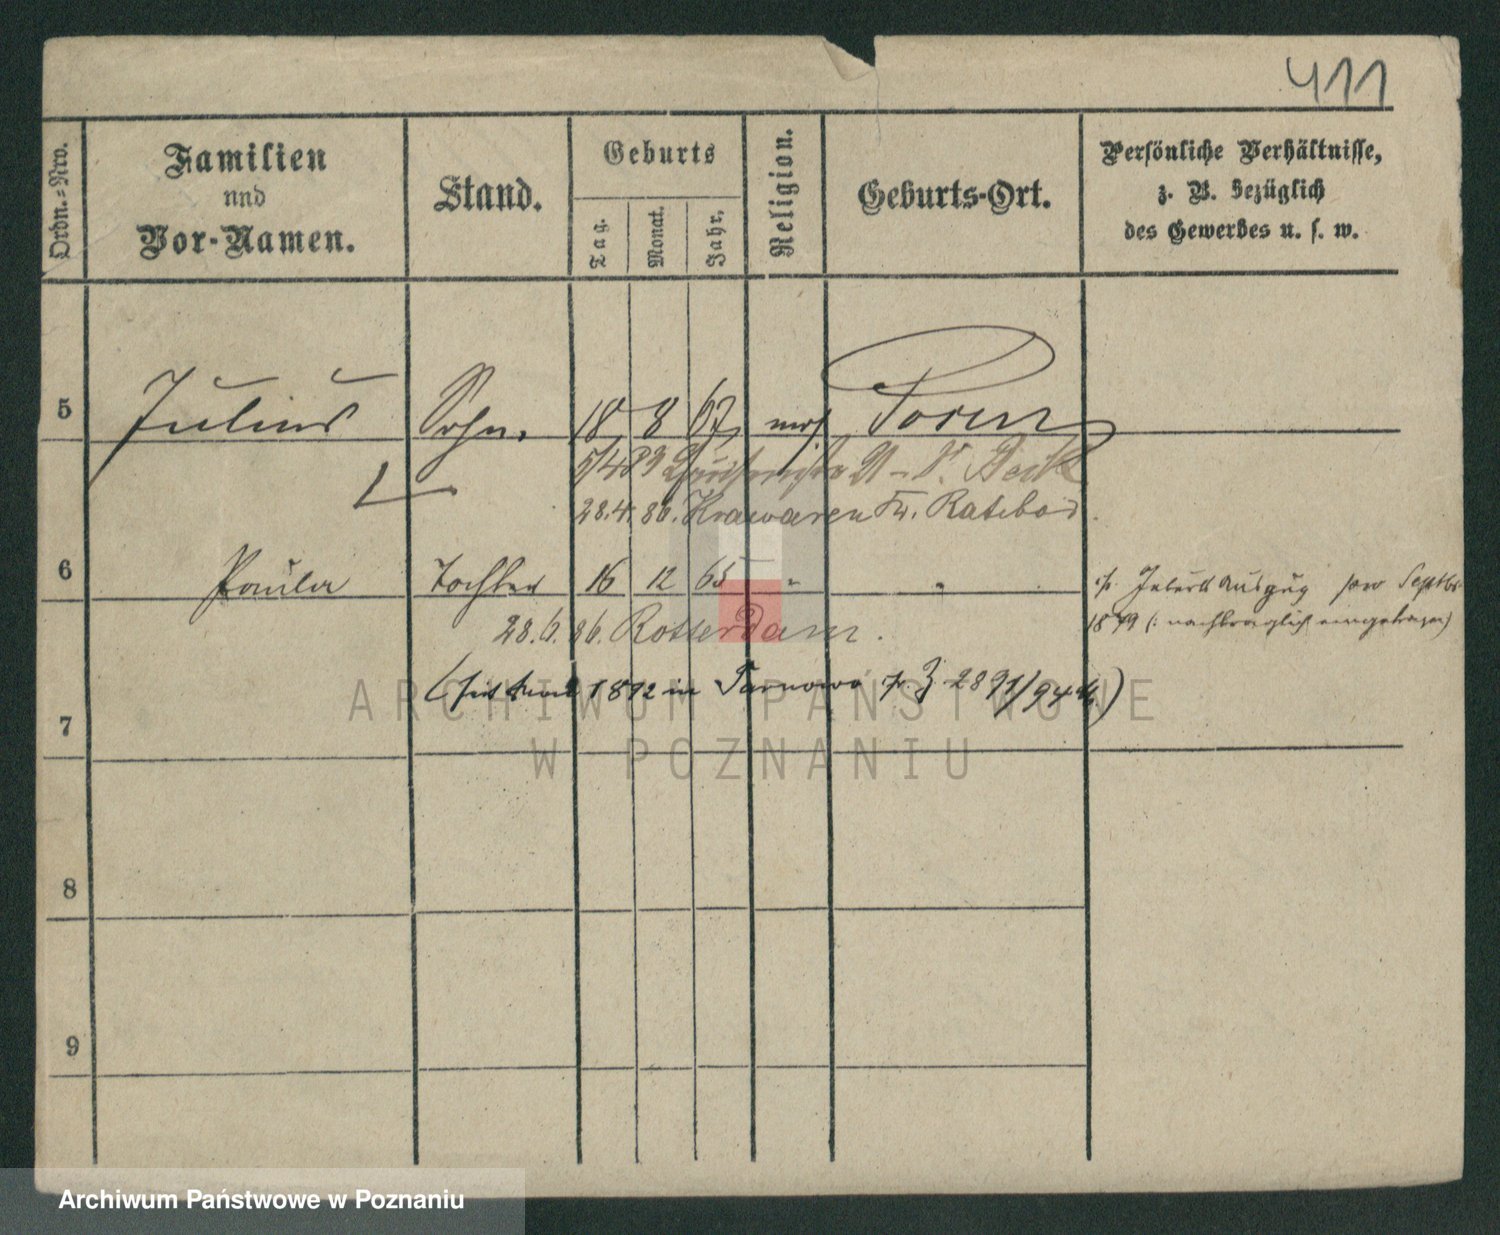 411
Ordn.-Nro.
Familien
und
Vor-Namen.
Stand.
Geburts
Tag.
Monat.
Jahr.
Religion.
Geburts-Ort.
Persönliche Verhältnisse,
z. B. bezüglich
des Gewerbes u. s. w.
5 Julius Sohn 18 8 67 mos Posen
5/4 89
28.4. 86. Krawaren Kr. Ratibor.
6 Paula Tochter 16 12 65 " "
1879 (: nachträglich eingetragen)
28.6.86. Rotterdam.
in Tarnowo 2891/94
7
8
9
ARCHIWUM PAŃSTWOWE
W POZNANIU
Archiwum Państwowe w Poznaniu